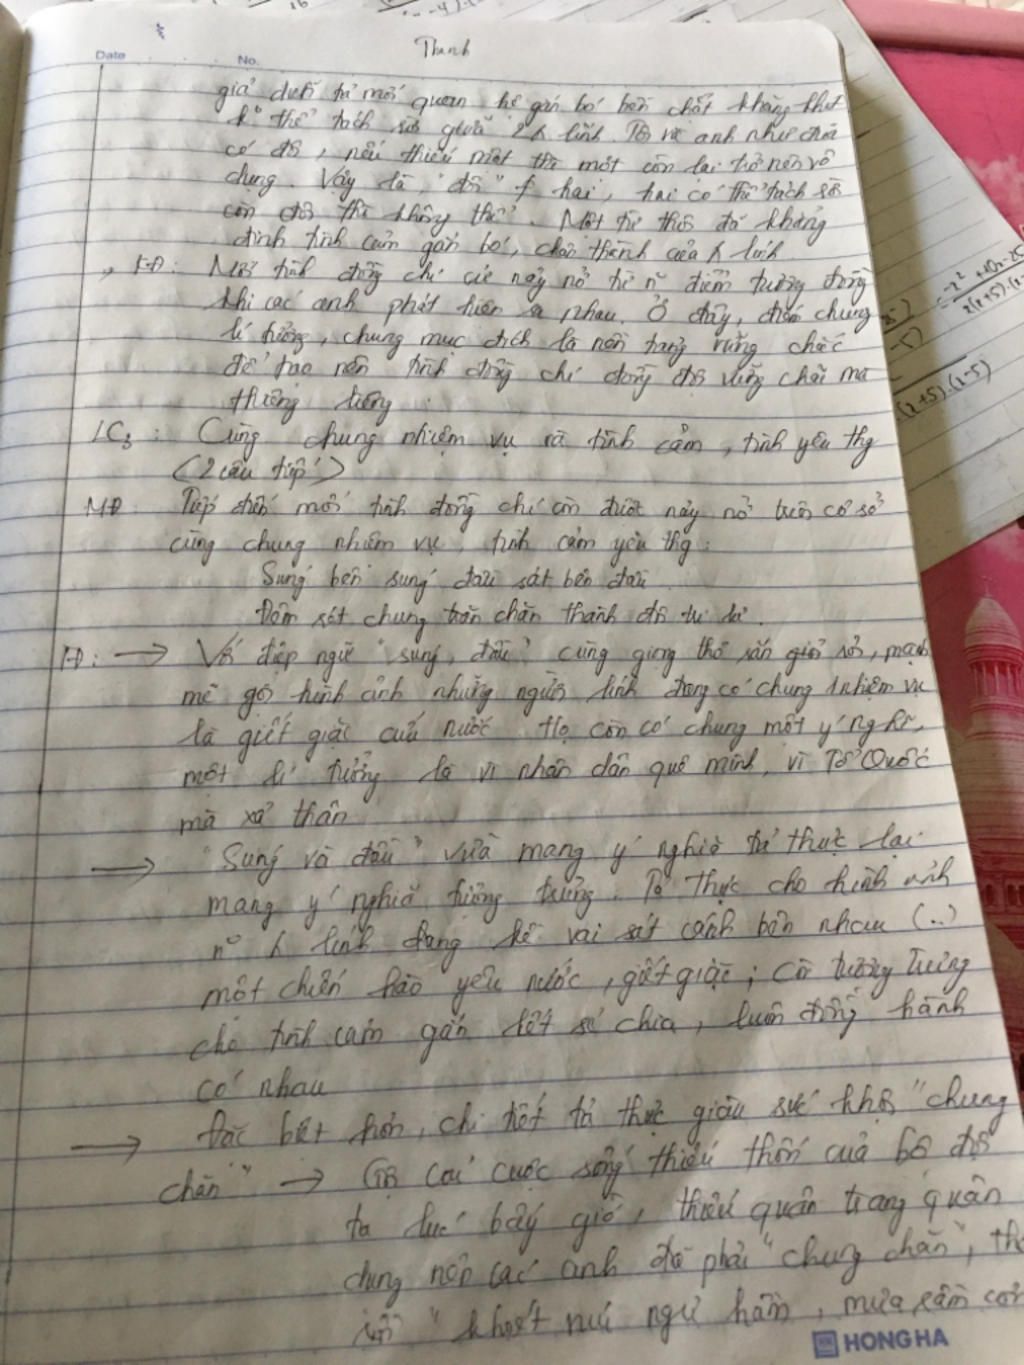 Date No. Thanh
giả dưới từ mối quan hệ gắn bó bền chặt khăng khít
k thể tách rời giữa 2 lính. Tôi và anh như
có đôi, nếu thiếu một thì một còn lại trở nên vô
dụng. Vậy là, "đôi" ≠ hai, hai có thể tách rời
còn đôi thì không thể. Một từ thôi đã khẳng
định tình cảm gắn bó, chân thành của lính.
KĐ: Mối tình đồng chí cứ nảy nở từ điểm tương đồng
khi các anh phát hiện ra nhau. Ở đây, điểm chung
lí tưởng, chung mục đích là nền tảng vững chắc
để tạo nên tình đồng chí đồng đội vững chãi mà
thiêng liêng.
LC3: Cùng chung nhiệm vụ và tình cảm, tình yêu thg
(2 câu tiếp)
MĐ Tiếp đến mối tình đồng chí còn được nảy nở trên cơ sở
cùng chung nhiệm vụ, tình cảm yêu thg:
Súng bên súng đầu sát bên đầu
Đêm rét chung chăn thành đôi tri kỉ.
→ Với điệp ngữ "súng, đầu" cùng giọng thơ rắn giỏi, mạnh
mẽ gợi hình ảnh những người lính đang có chung nhiệm vụ
là giết giặc cứu nước. Họ còn có chung một ý nghĩ,
một lí tưởng là vì nhân dân quê mình, vì Tổ Quốc
mà xả thân
→ "Súng và đầu" vừa mang ý nghĩa tả thực lại
mang ý nghĩa tượng trưng. Tả thực cho hình ảnh
lính đang kề vai sát cánh bên nhau (..)
một chiến hào yêu nước, giết giặc; Còn tượng trưng
cho tình cảm gắn kết sẻ chia, luôn đồng hành
có nhau
→ Đặc biệt hơn, chi tiết tả thực giàu sức khơi "chung
chăn" → Gợi cái cuộc sống thiếu thốn của bộ đội
ta lúc bấy giờ, thiếu quân trang quân
dụng nên các anh đã phải "chung chăn",
rồi "khoét núi ngủ hầm, mưa dầm cơm
HONG HA